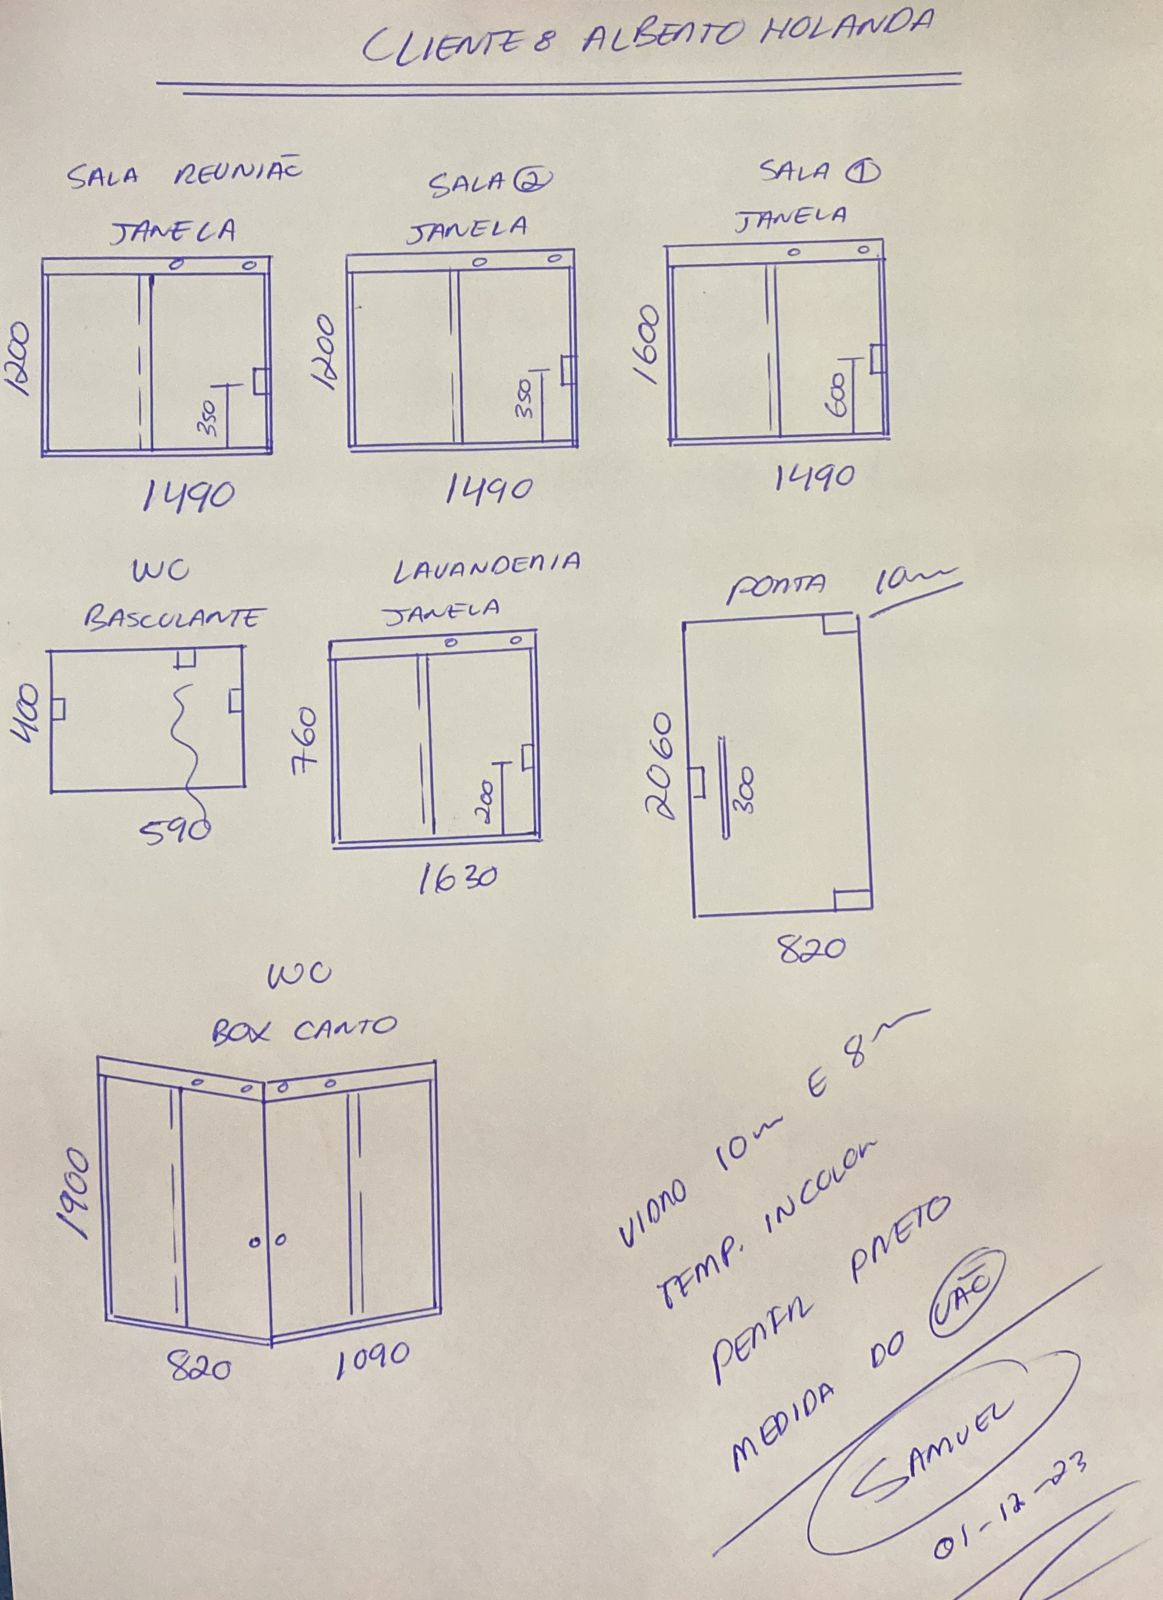 CLIENTE: ALBERTO HOLANDA
SALA REUNIÃO
JANELA
1200
350
1490
SALA ②
JANELA
1200
350
1490
SALA ①
JANELA
1600
600
1490
WC
BASCULANTE
400
590
LAVANDERIA
JANELA
760
200
1630
PORTA 10m
2060
300
820
WC
BOX CANTO
1900
820
1090
VIDRO 10m E 8m
TEMP. INCOLOR
PERFIL PRETO
MEDIDA DO VÃO
SAMUEL
01-12-23